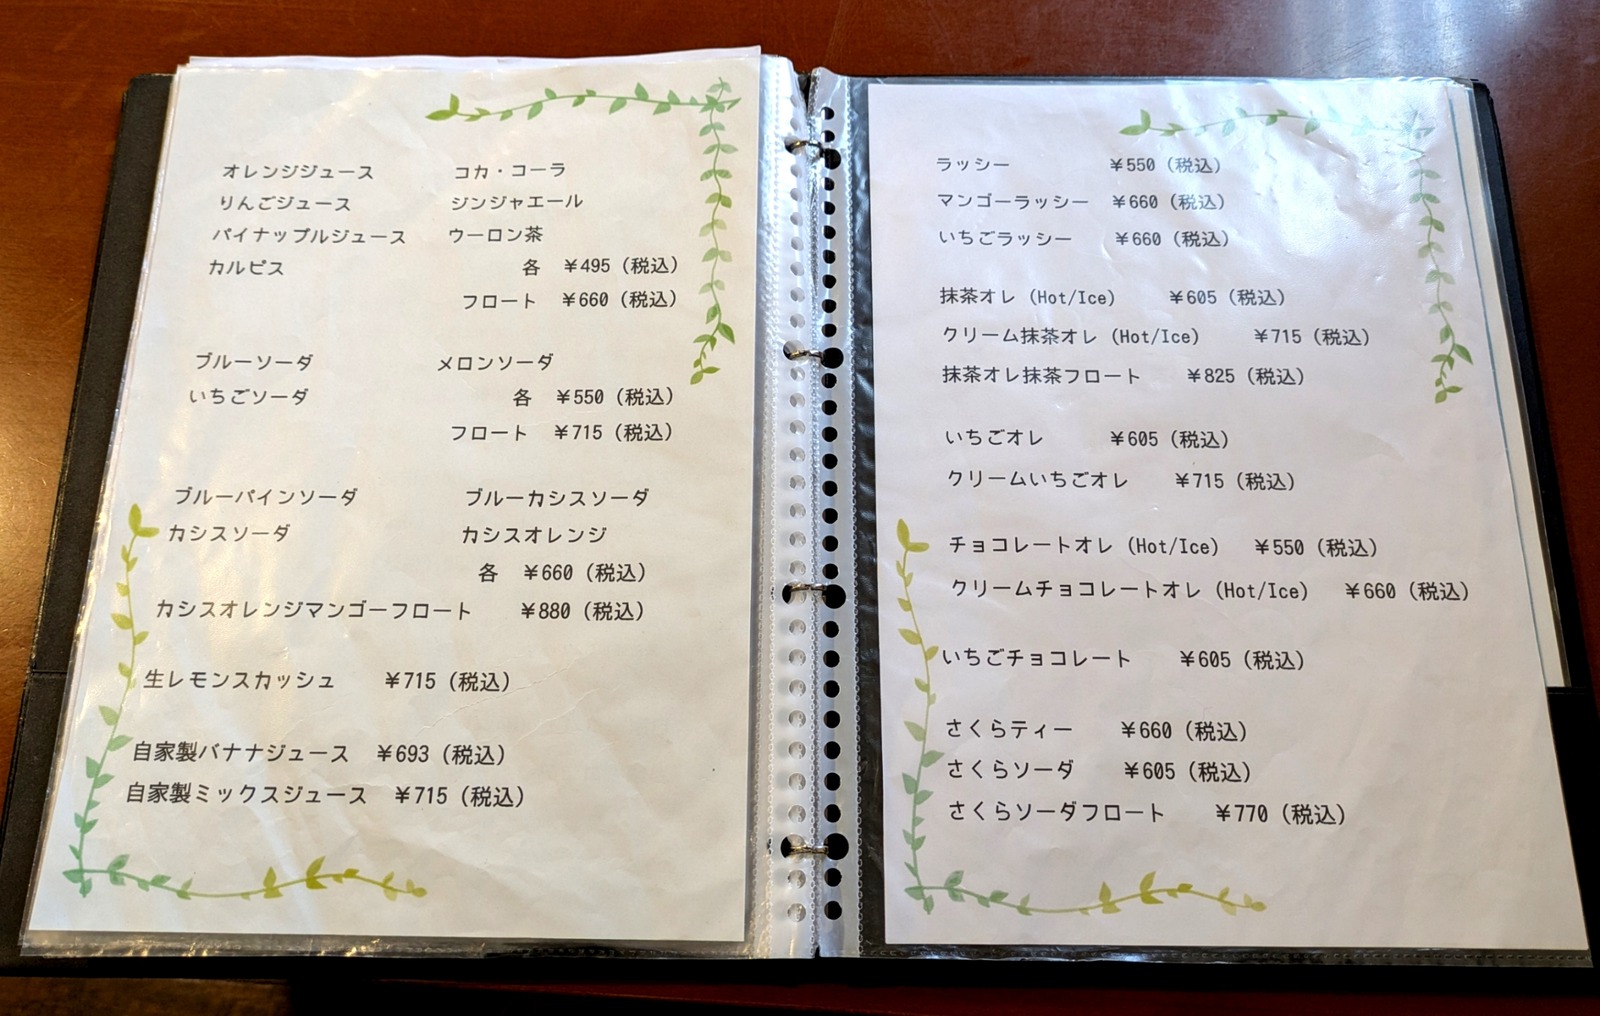 オレンジジュース　コカ・コーラ
りんごジュース　ジンジャエール
パイナップルジュース　ウーロン茶
カルピス　各　¥495（税込）
フロート　¥660（税込）
ブルーソーダ　メロンソーダ
いちごソーダ　各　¥550（税込）
フロート　¥715（税込）
ブルーパインソーダ　ブルーカシスソーダ
カシスソーダ　カシスオレンジ
各　¥660（税込）
カシスオレンジマンゴーフロート　¥880（税込）
生レモンスカッシュ　¥715（税込）
自家製バナナジュース　¥693（税込）
自家製ミックスジュース　¥715（税込）
ラッシー　¥550（税込）
マンゴーラッシー　¥660（税込）
いちごラッシー　¥660（税込）
抹茶オレ（Hot/Ice）　¥605（税込）
クリーム抹茶オレ（Hot/Ice）　¥715（税込）
抹茶オレ抹茶フロート　¥825（税込）
いちごオレ　¥605（税込）
クリームいちごオレ　¥715（税込）
チョコレートオレ（Hot/Ice）　¥550（税込）
クリームチョコレートオレ（Hot/Ice）　¥660（税込）
いちごチョコレート　¥605（税込）
さくらティー　¥660（税込）
さくらソーダ　¥605（税込）
さくらソーダフロート　¥770（税込）